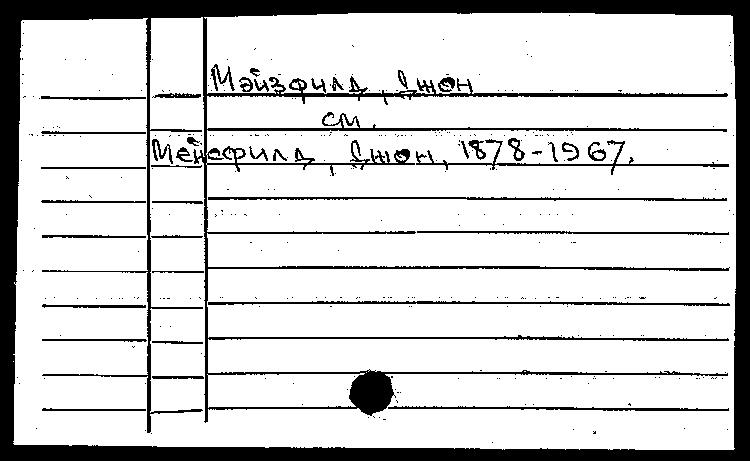 Мэйзфилд, Джон
см.
Мейсфилд, Джон, 1878-1967.